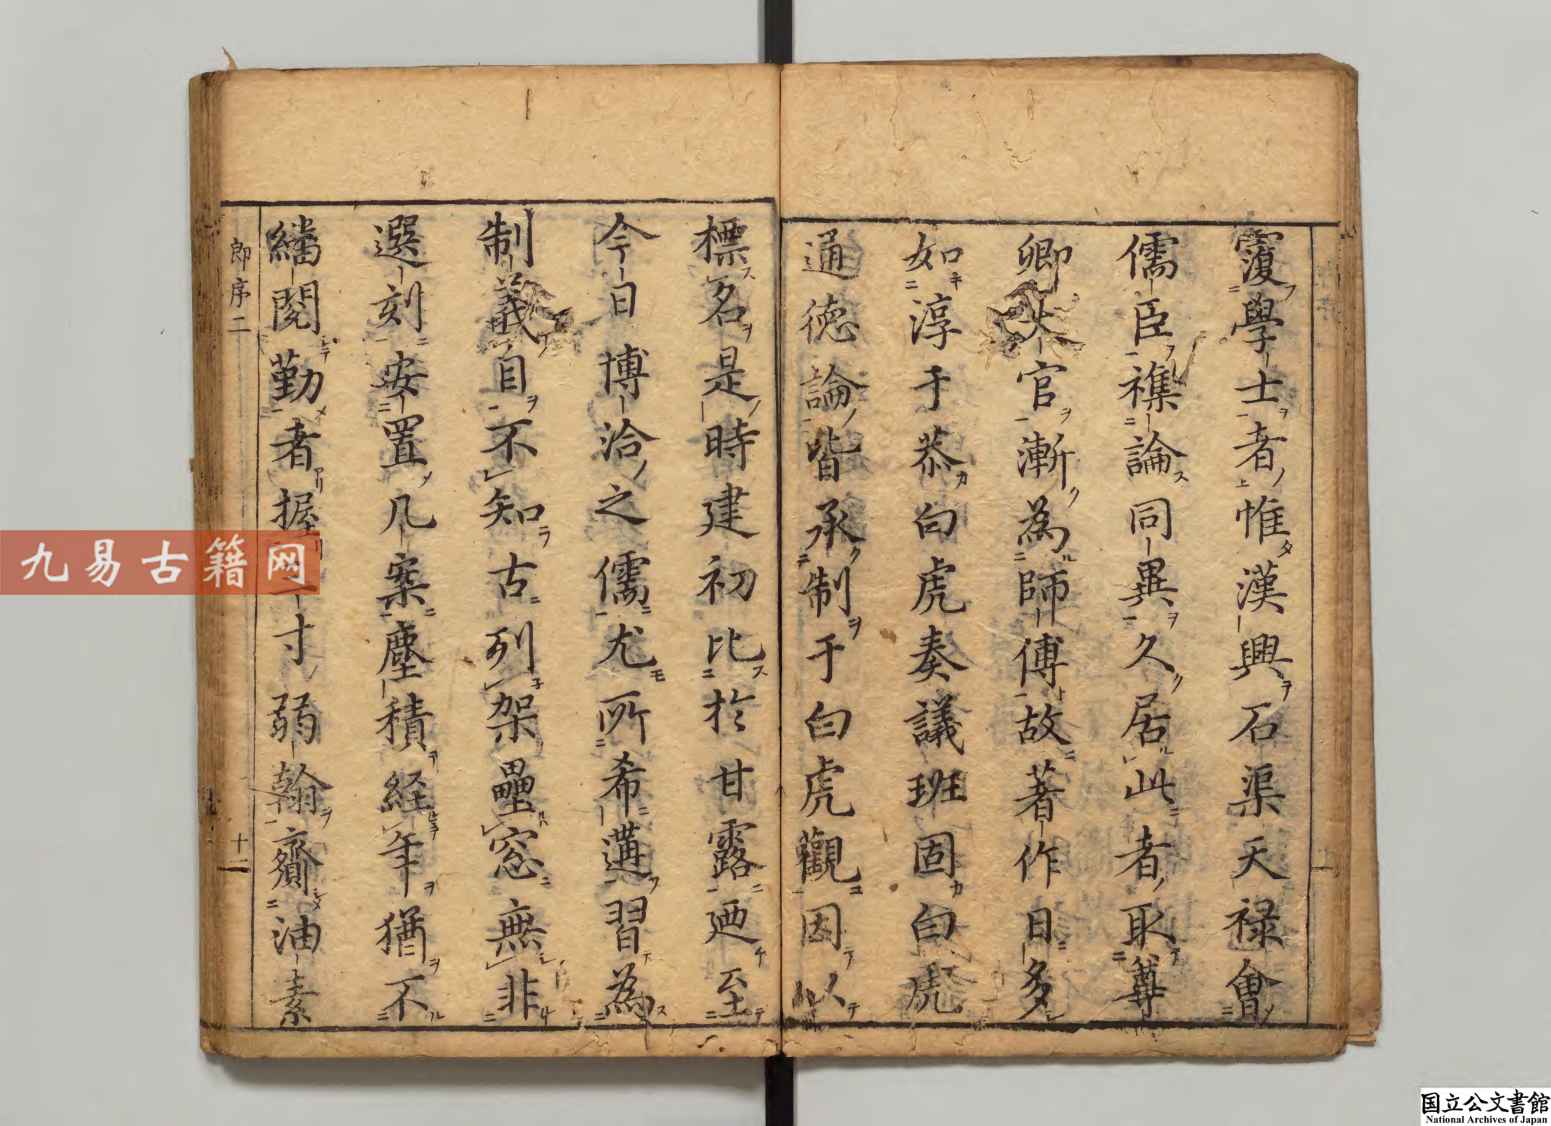 覆學士者惟漢興石渠天祿會
儒臣襍論同異久居此者取尊
卿大官漸為師傅故著作日多
如淳于恭白虎奏議班固白虎
通德論皆承制于白虎觀因以
標名是時建初比於甘露廼至
今日博洽之儒尤所希遘習為
制義目不知古列架壘窓無非
選刻安置几案塵積経年猶不
繙閱勤者握寸弱翰齎油素
郎序二
十二
九易古籍网
国立公文書館
National Archives of Japan